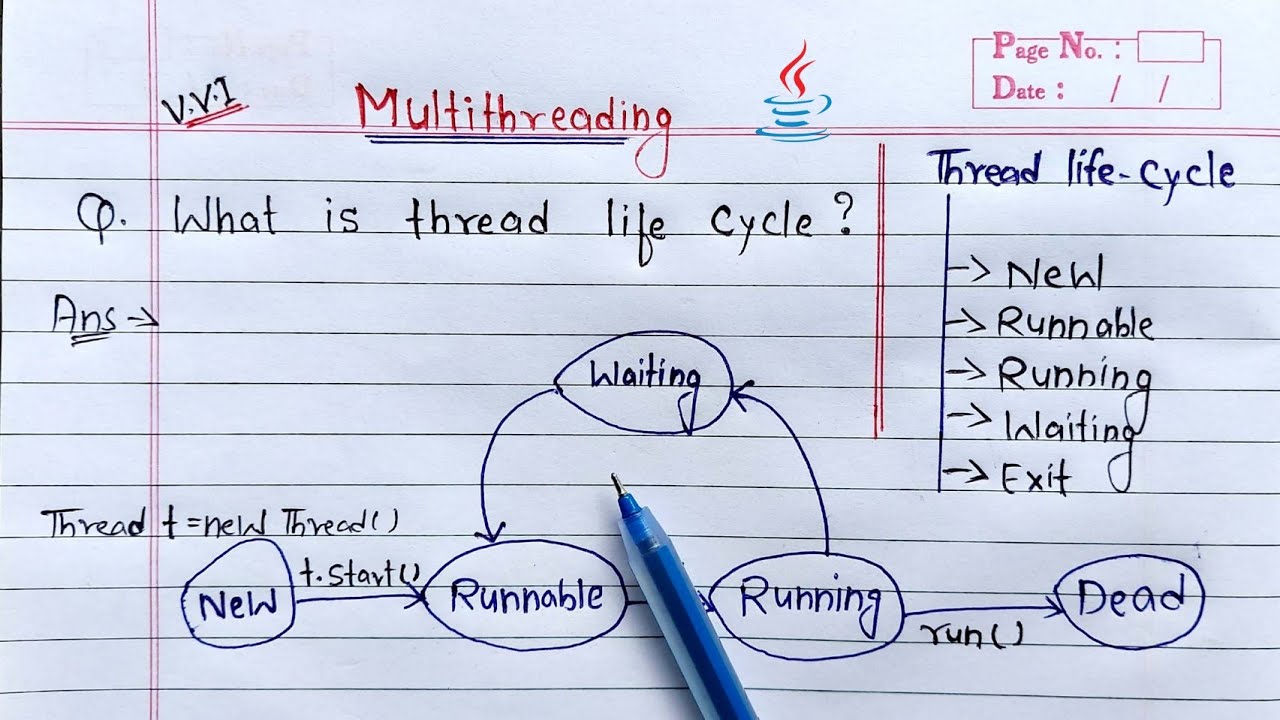 Page No. :
Date : / /
V.V.I
Multithreading
Q. What is thread life cycle?
Ans →
Thread life-cycle
→ New
→ Runnable
→ Running
→ Waiting
→ Exit
Waiting
Thread t = new Thread()
New
t.start()
Runnable
Running
run()
Dead